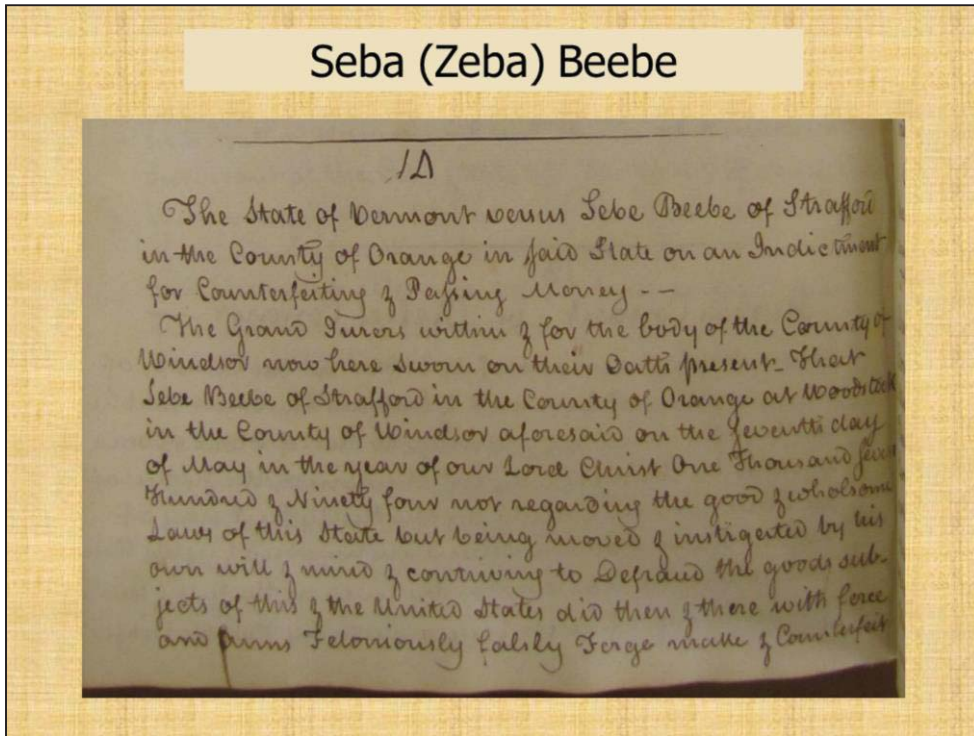 Seba (Zeba) Beebe
The State of Vermont versus Sebe Beebe of Strafford
in the County of Orange in said State on an Indictment
for Counterfeiting & Passing Money --
The Grand Jurers within & for the body of the County of
Windsor now here sworn on their Oath present. That
Sebe Beebe of Strafford in the County of Orange at Woodstock
in the County of Windsor aforesaid on the seventh day
of May in the year of our Lord Christ One Thousand Seven
Hundred & Ninety four not regarding the good & wholsome
Laws of this State but being moved & instigated by his
own will & mind & contriving to Defraud the goods sub-
jects of this & the United States did then & there with force
and arms Feloniously falsly Forge make & Counterfeit